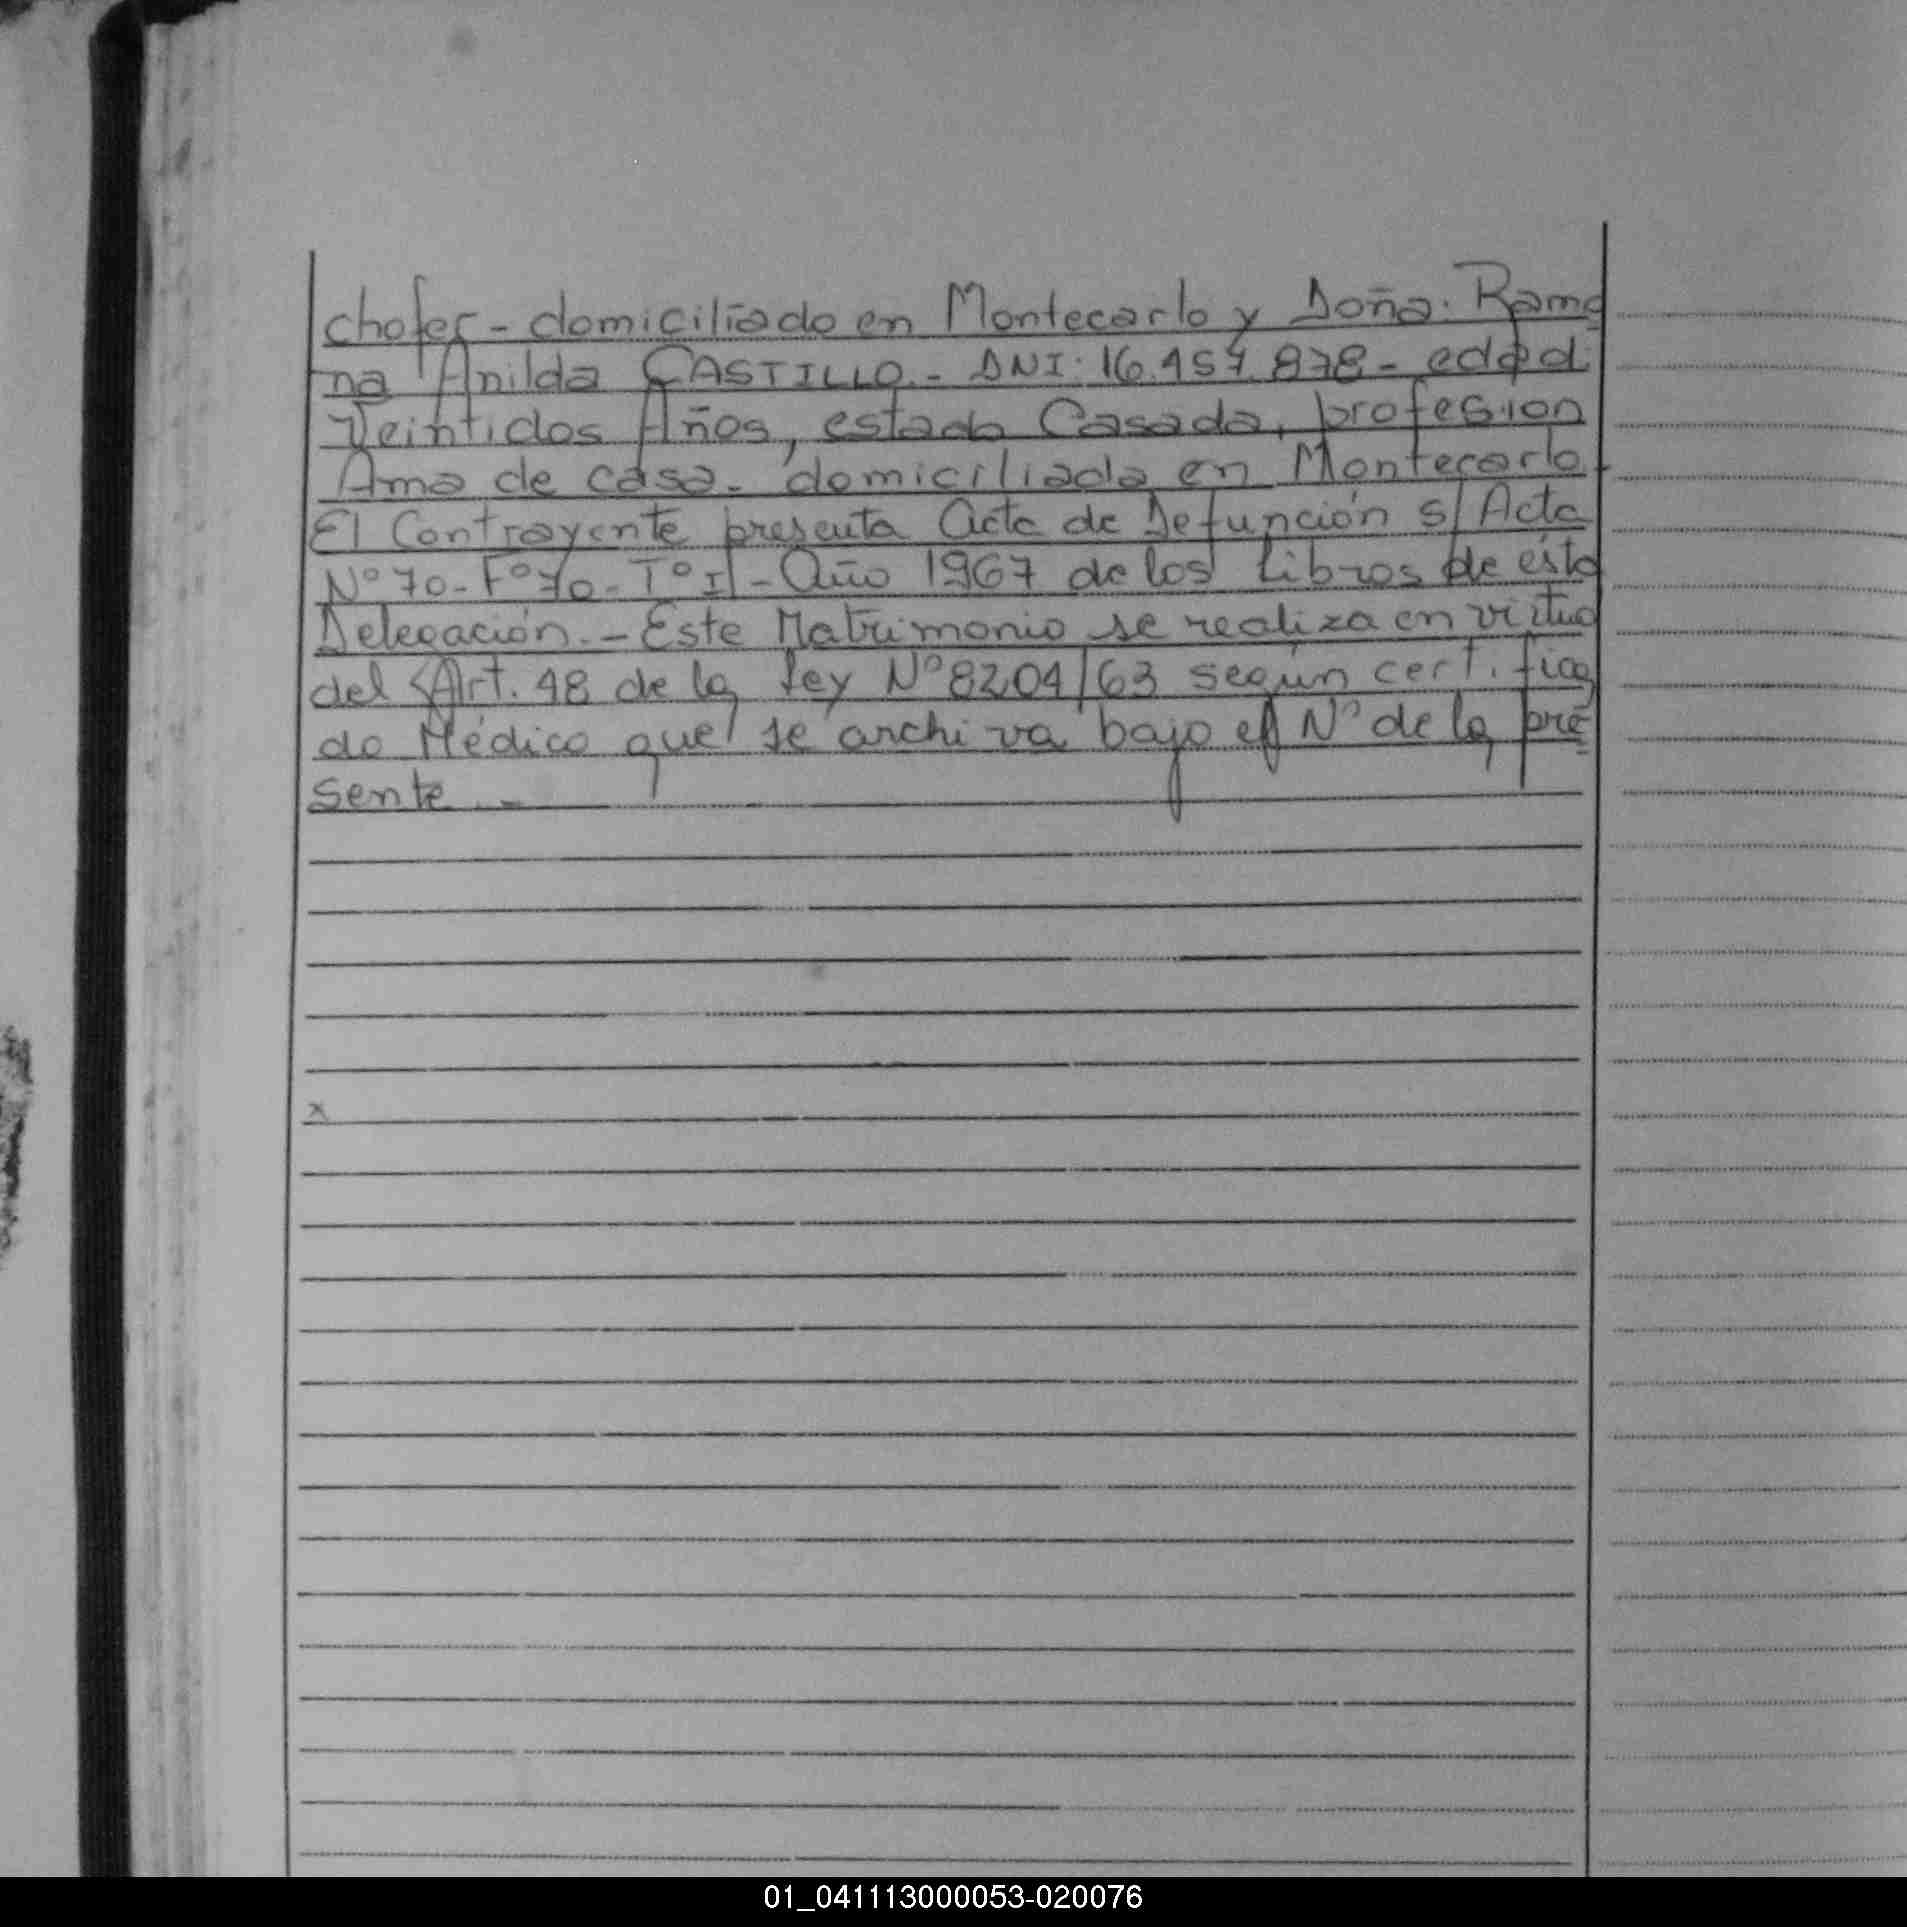 chofer - domiciliado en Montecarlo y Doña. Ramo
na Anilda CASTILLO. - DNI: 16.457.878 - edad d
Veintidos Años, estado Casada, profesion
Ama de casa. domiciliada en Montecarlo.
El Contrayente presenta Acta de Defunción s/ Acta
Nº 70 - Fº 70 - Tº I - Año 1967 de los Libros de esta
Delegación. - Este Matrimonio se realiza en virtud
del Art. 48 de la Ley Nº 8204/63 según certifica
do Médico que se archiva bajo el Nº de la pre
sente. -
x
01_041113000053-020076